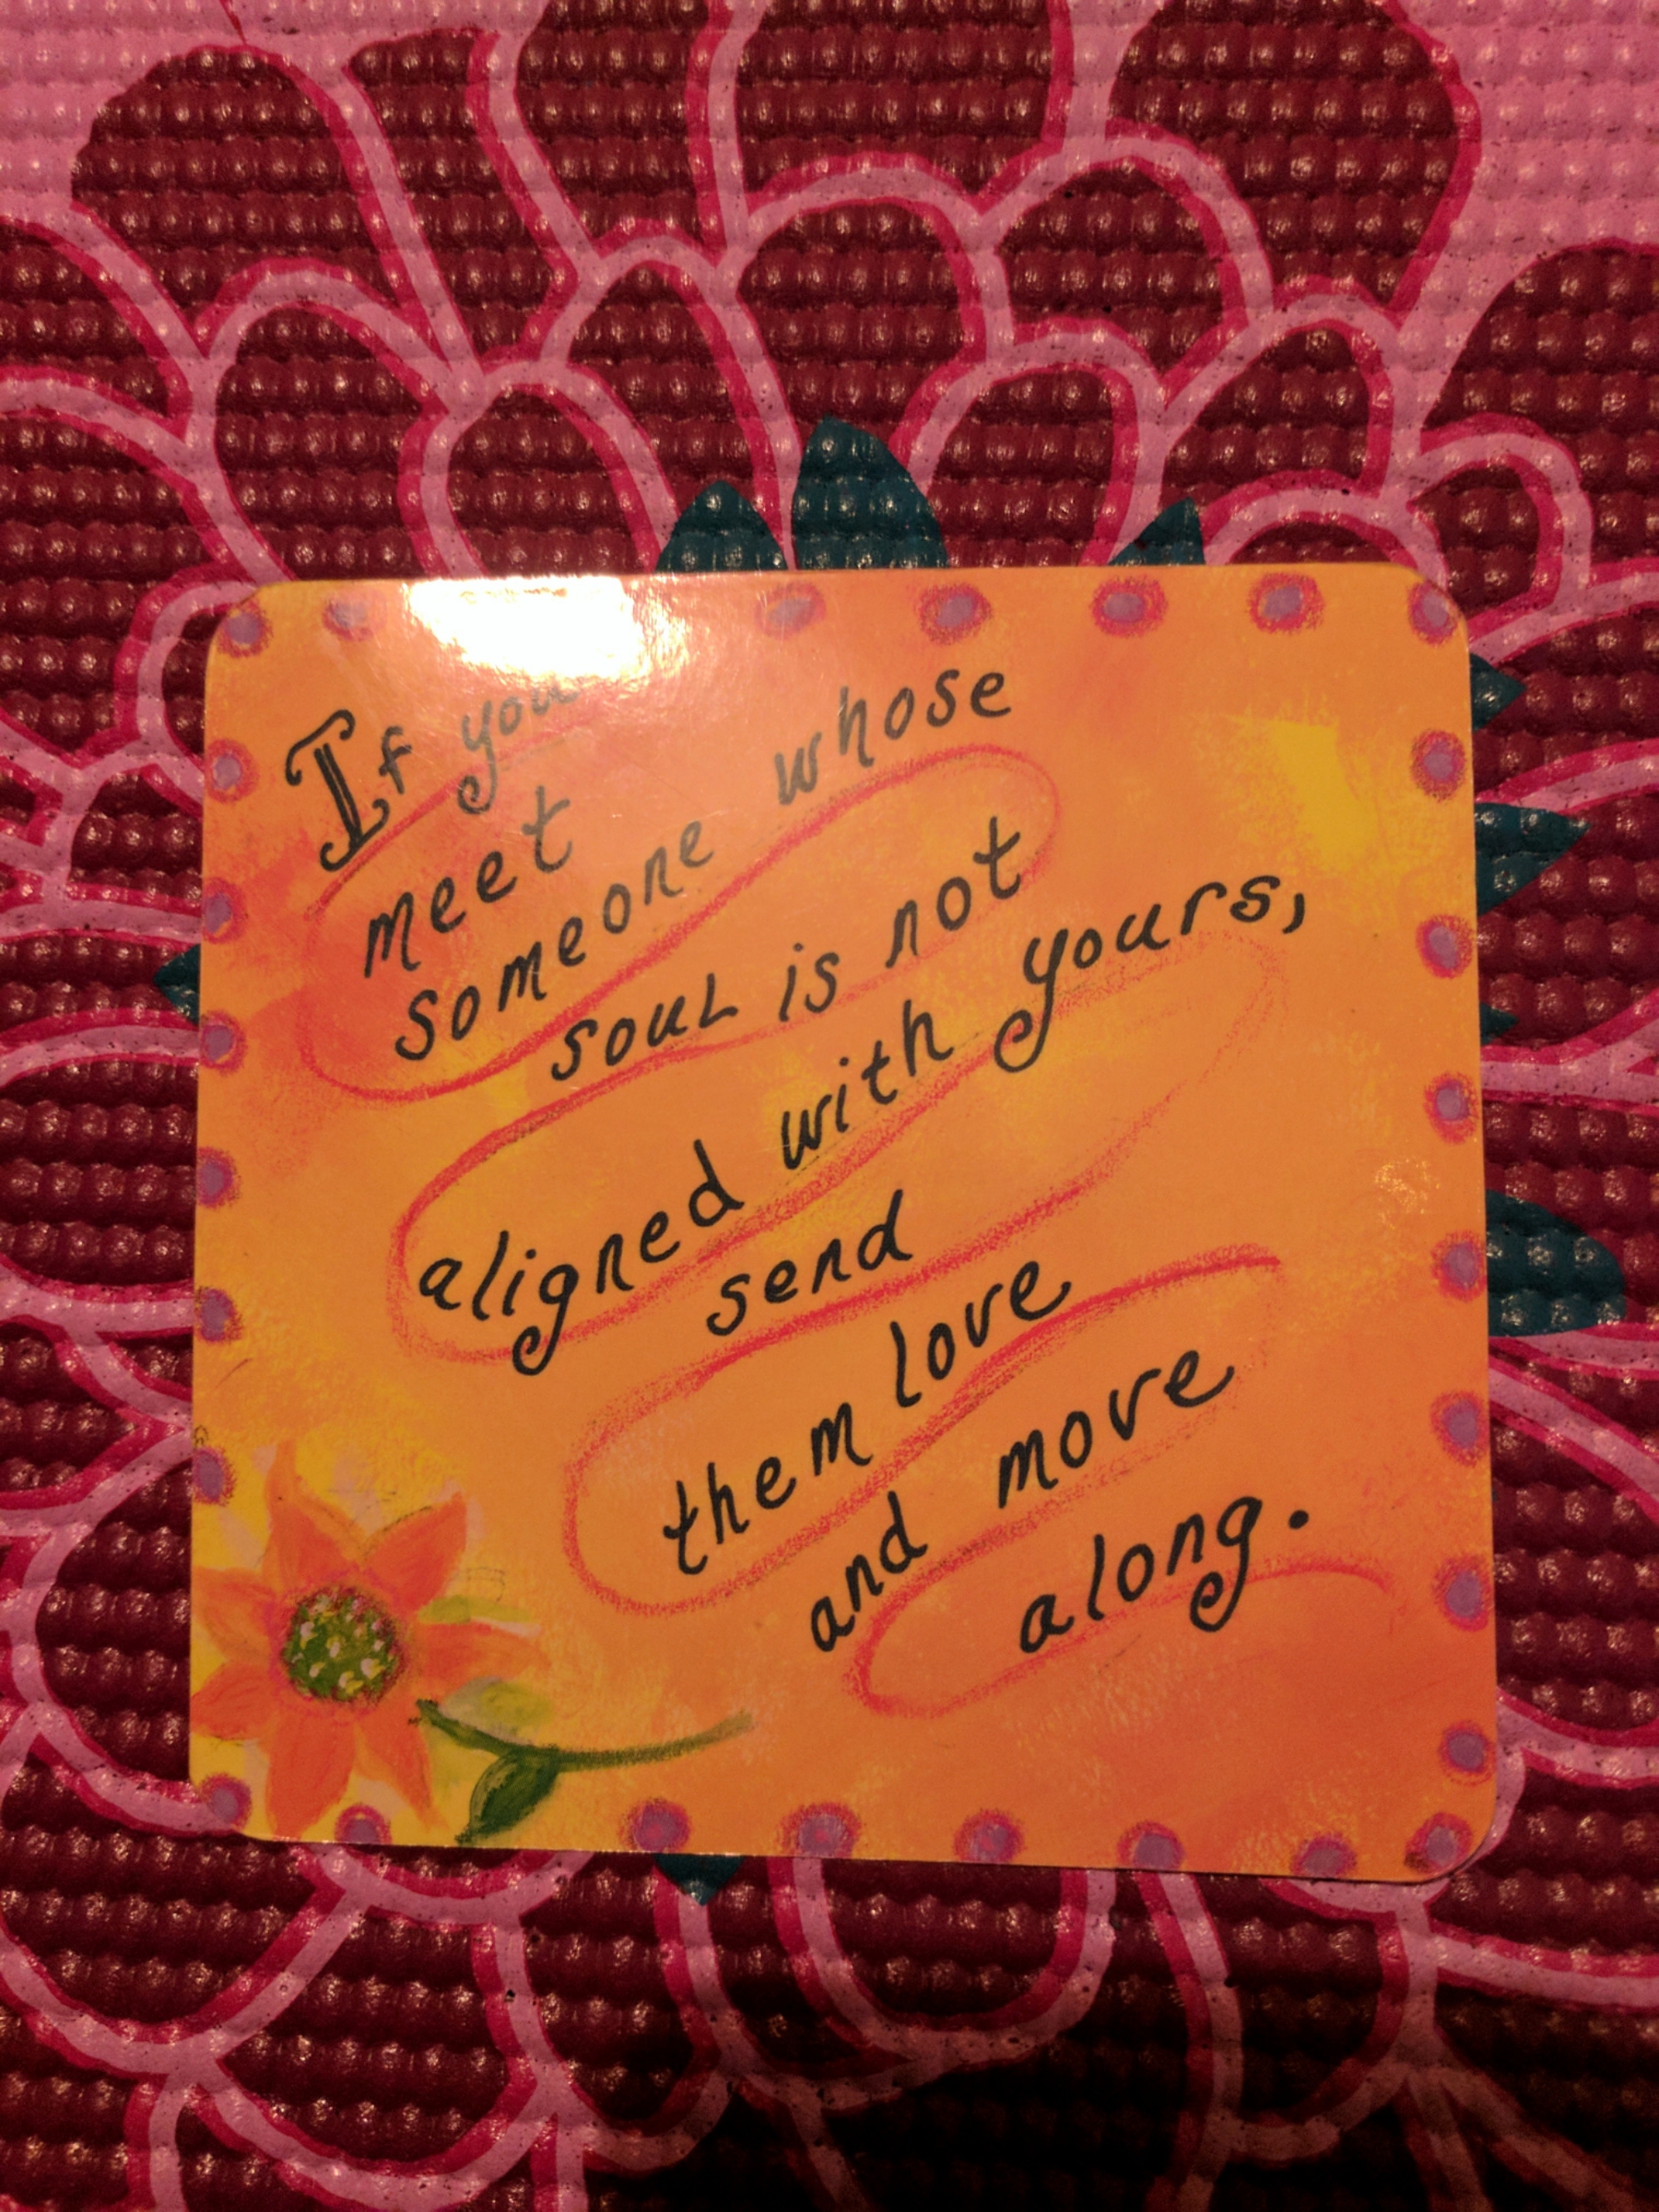 If you
meet
someone whose
soul is not
aligned with yours,
send
them love
and move
along.